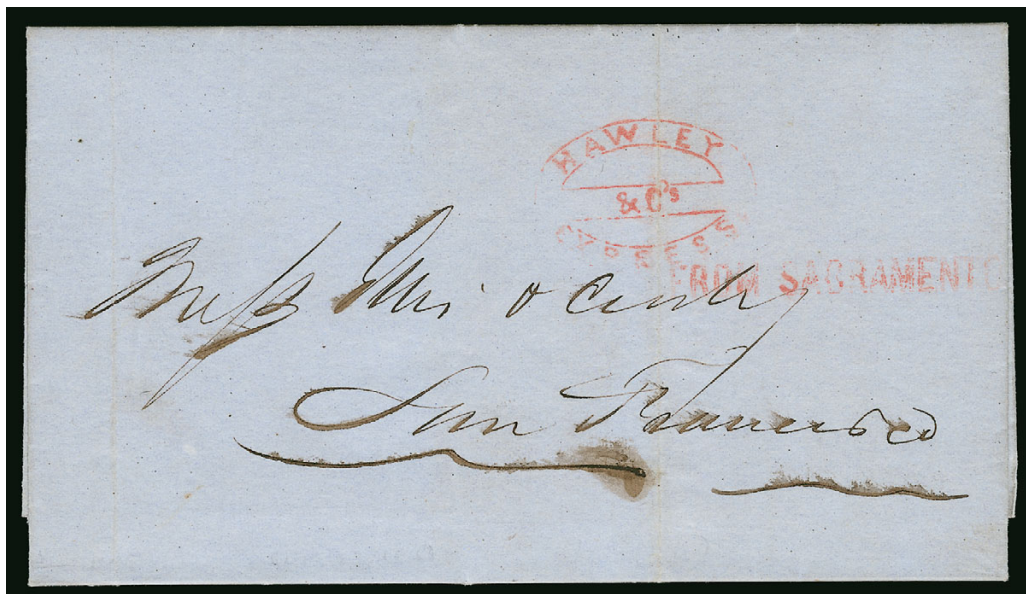 HAWLEY
& Co's
EXPRESS
FROM SACRAMENTO
Mess
San Francisco